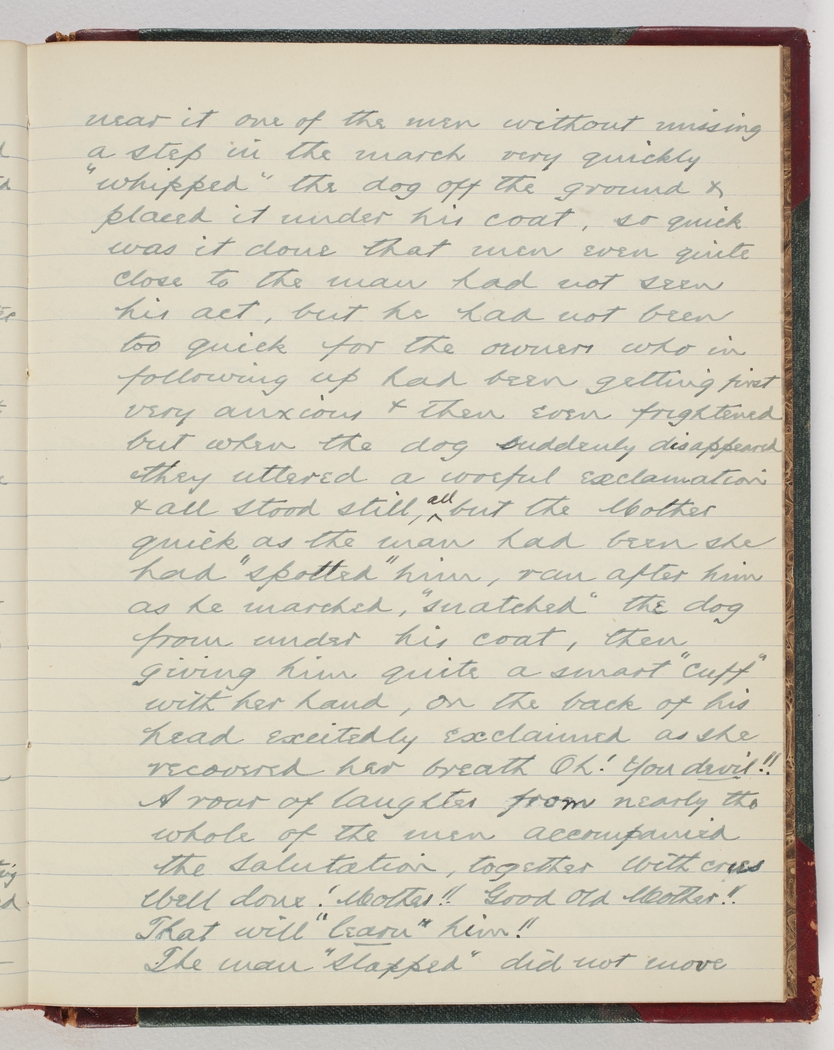 near it one of the men without missing
a step in the march very quickly
"whipped" the dog off the ground &
placed it under his coat, so quick
was it done that men even quite
close to the man had not seen
his act, but he had not been
too quick for the owners who in
following up had been getting first
very anxious & then even frightened
but when the dog suddenly disappeared
they uttered a woeful exclamation
& all stood still, all but the Mother
quick as the man had been she
had "spotted" him, ran after him
as he marched, "snatched" the dog
from under his coat, then
giving him quite a smart "cuff"
with her hand, on the back of his
head excitedly exclaimed as she
recovered her breath Oh! You devil!!
A roar of laughter from nearly the
whole of the men accompanied
the Salutation, together with cries
Well done! Mother!! Good Old Mother!!
That will "learn" him!!
The man "slapped" did not move